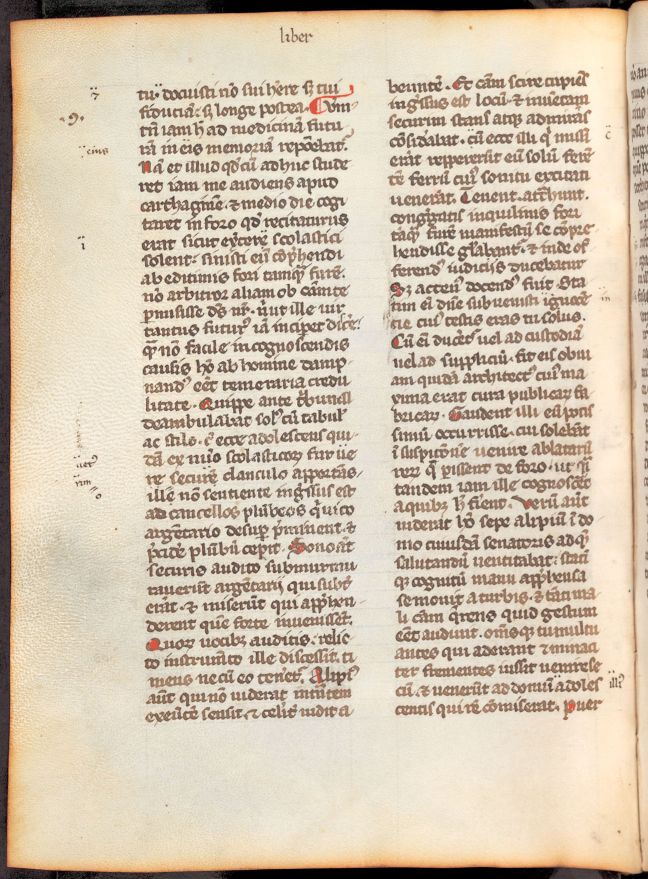 liber
tu docuisti nō sui hēre s; tui
fiduciā. s; longe postea. Cum
tn̄ iam h̄ ad medicinā futu
rā in eius memoriā reponebat᷒.
Nā et illud qd cū adhuc stude
ret iam me audiens apud
carthaginē. & medio die cogi
taret in foro qd recitaturus
erat sicut exerceri scolastici
solent. sinisti eū cōprehendi
ab editimis fori tamq̄ furē.
nō arbitror aliam ob cām te
pmisisse ds̄ nr̄. nisi ut ille uir
tantus futur᷒ iā inciperet disce
q̄ nō facile in cognoscendis
causis hō ab homine damp
nand᷒ eēt temeraria credu
litate. Quippe ante tbunal
deambulabat sol᷒ cū tabul᷒
ac stilo. c̄ ecce adolescens qui
dā ex nūo scolasticoꝝ fur ue
re securē clanculo apportās.
ille nō sentiente ingssus est
ad cancellos plūbeos q̄ uico
argentario desup pminent. &
p̄cidere plūbū cepit. Sono aūt
securis audito submurmu
rauerūt argētarij qui subt᷒
erāt. & miserūt qui apphen
derent quē forte inuenissēt.
Quoꝝ uocibꝫ auditis. relic
to instrumēto ille discessit. ti
mens ne cū eo teneret᷒. Alipi᷒
aūt qui non uiderat intrātem
exeūtē sensit. & celerit᷒ uidit a
beuntē. Et cām scire cupiēs
ingssus est locū. & inuētam
securim stans atqꝫ admirās
cōsidabat. cū ecce illi q̄ missi
erāt reppererūt eū solū ferē
tē ferrū cui᷒ sonitu excitati
uenerāt. Tenent. atthunt.
congregatis inquilinis fori
tāqꝫ furē manifestū se cōpre
hendisse glābant᷒. & inde of
ferend᷒ iudicijs ducebatur
S; acten᷒ docend᷒ fuit. Sta
tim ēi dn̄e subuenisti ignocē
tie cui᷒ testis eras tu solus.
Cū ēi duceret᷒ uel ad custodiā
uel ad suppliciū. fit eis obui
am quidā architect᷒ cui᷒ ma
xima erat cura publicaꝝ fa
bricaꝝ. Gaudent illi eū potis
simū occurrisse. cui solebāt
ī suspitionē uenire ablataꝝ
reꝝ q̄ pissent de foro. ut q̄i
tandem iam ille cognoscēt
a quibꝫ h̄ fient. Verū aūt
uiderat hō sepe alipiū ī do
mo cuiusdā senatoris ad quē
salutandū uentitabat. statī
qꝫ cognitū manu apphensa
semouit a turbis. & tāti ma
li cām querens quid gestum
eēt audiuit. omsqꝫ tumultu
antes qui aderant & minaci
ter frementes iussit uenire se
cū. & uenerūt ad domū adoles
centis qui rē cōmiserat. Puer